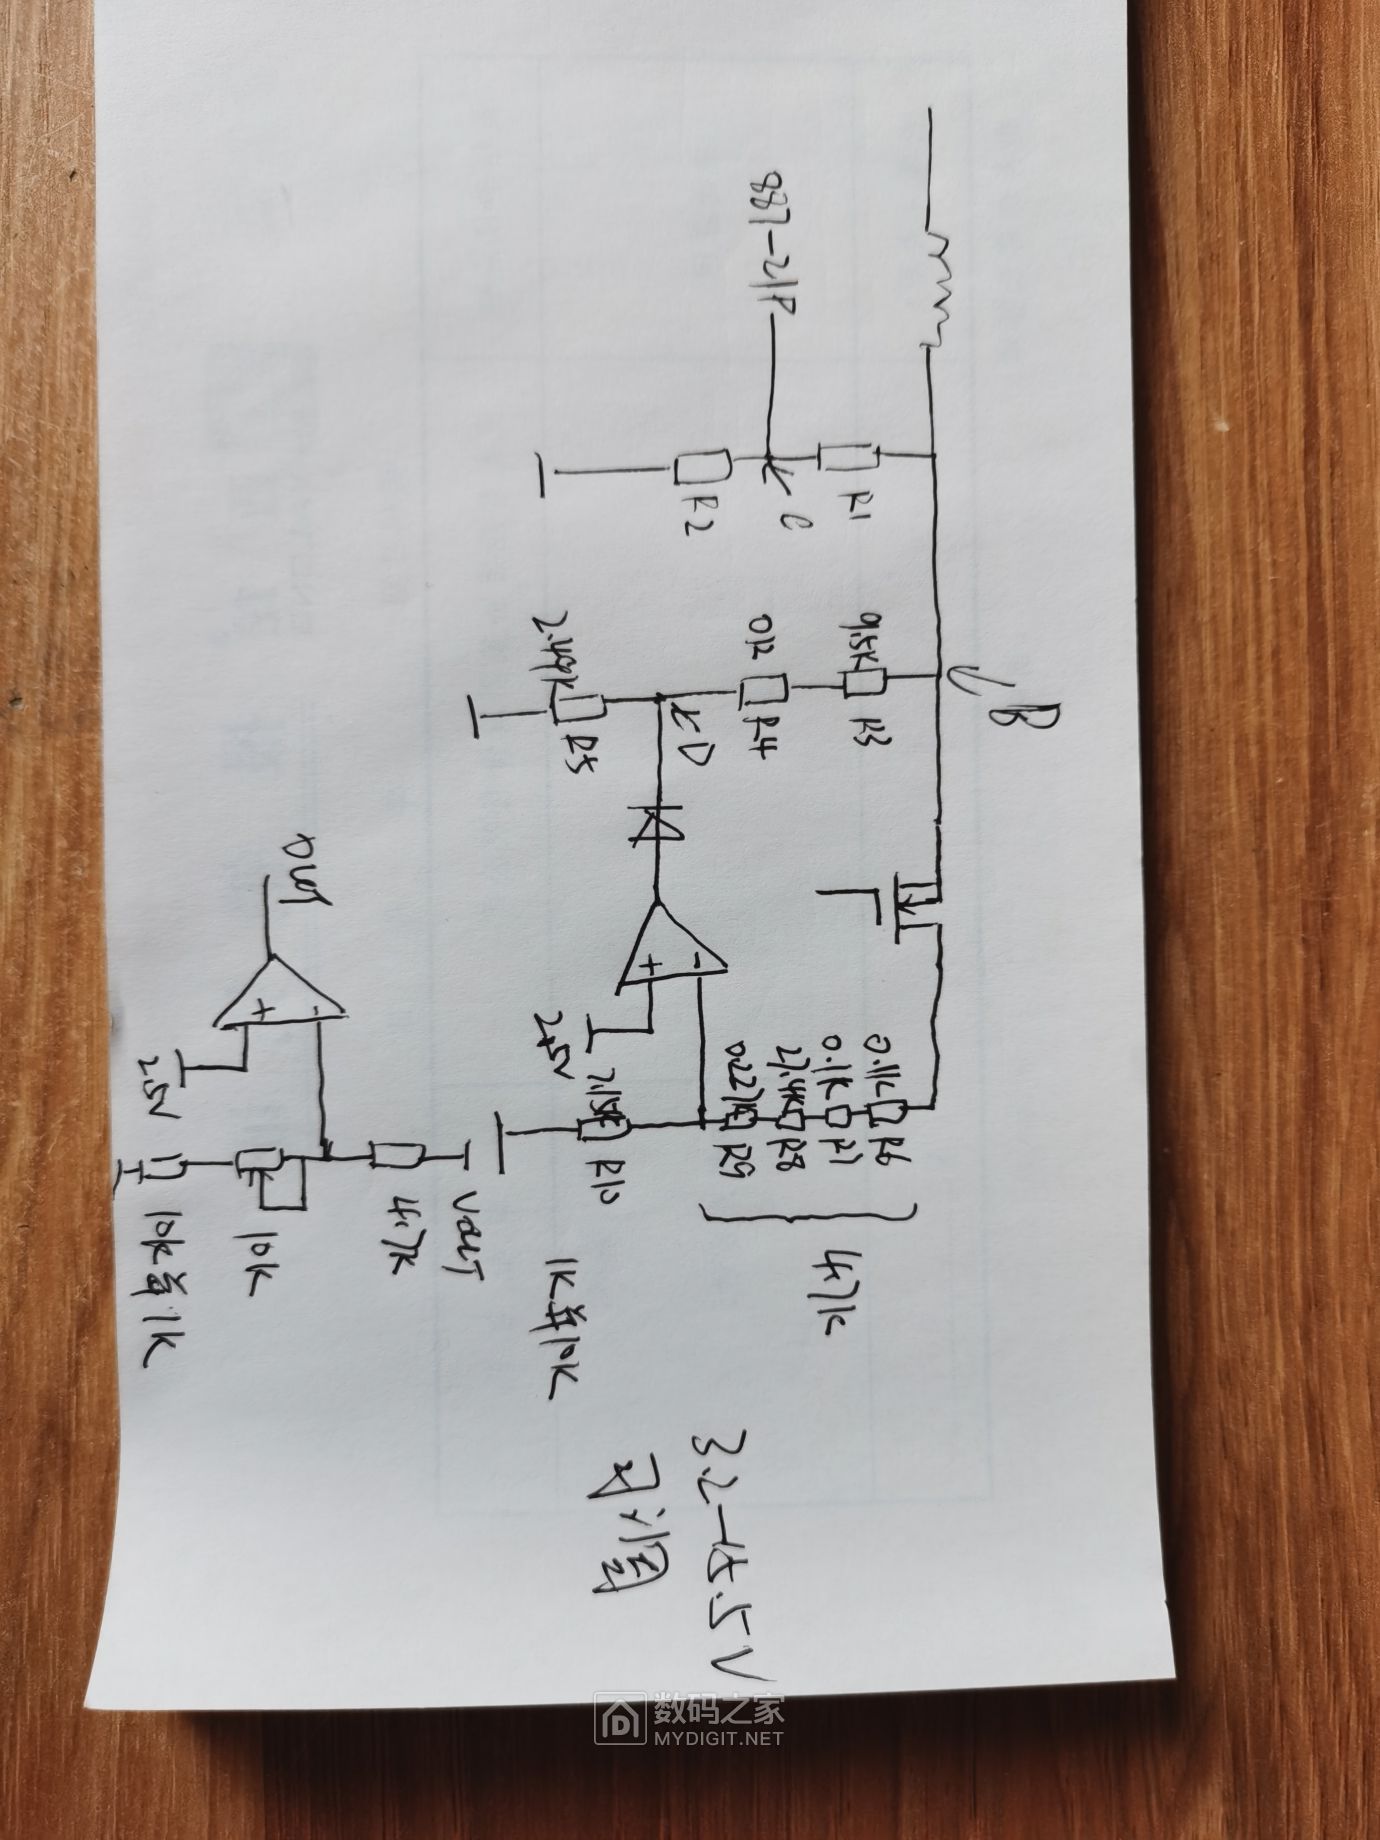 B
887-21P
C
R1
R2
9.5K
R3
0R
R4
D
2.49K
R5
0.11K
R6
0.1K
R7
27.4K
R8
0.227K
R9
-
+
2.5V
R10
47K
1K并10K
3.2-15.5V
可调
Out
-
+
2.5V
Vout
4.7K
10K
10K并1K
数码之家
MYDIGIT.NET